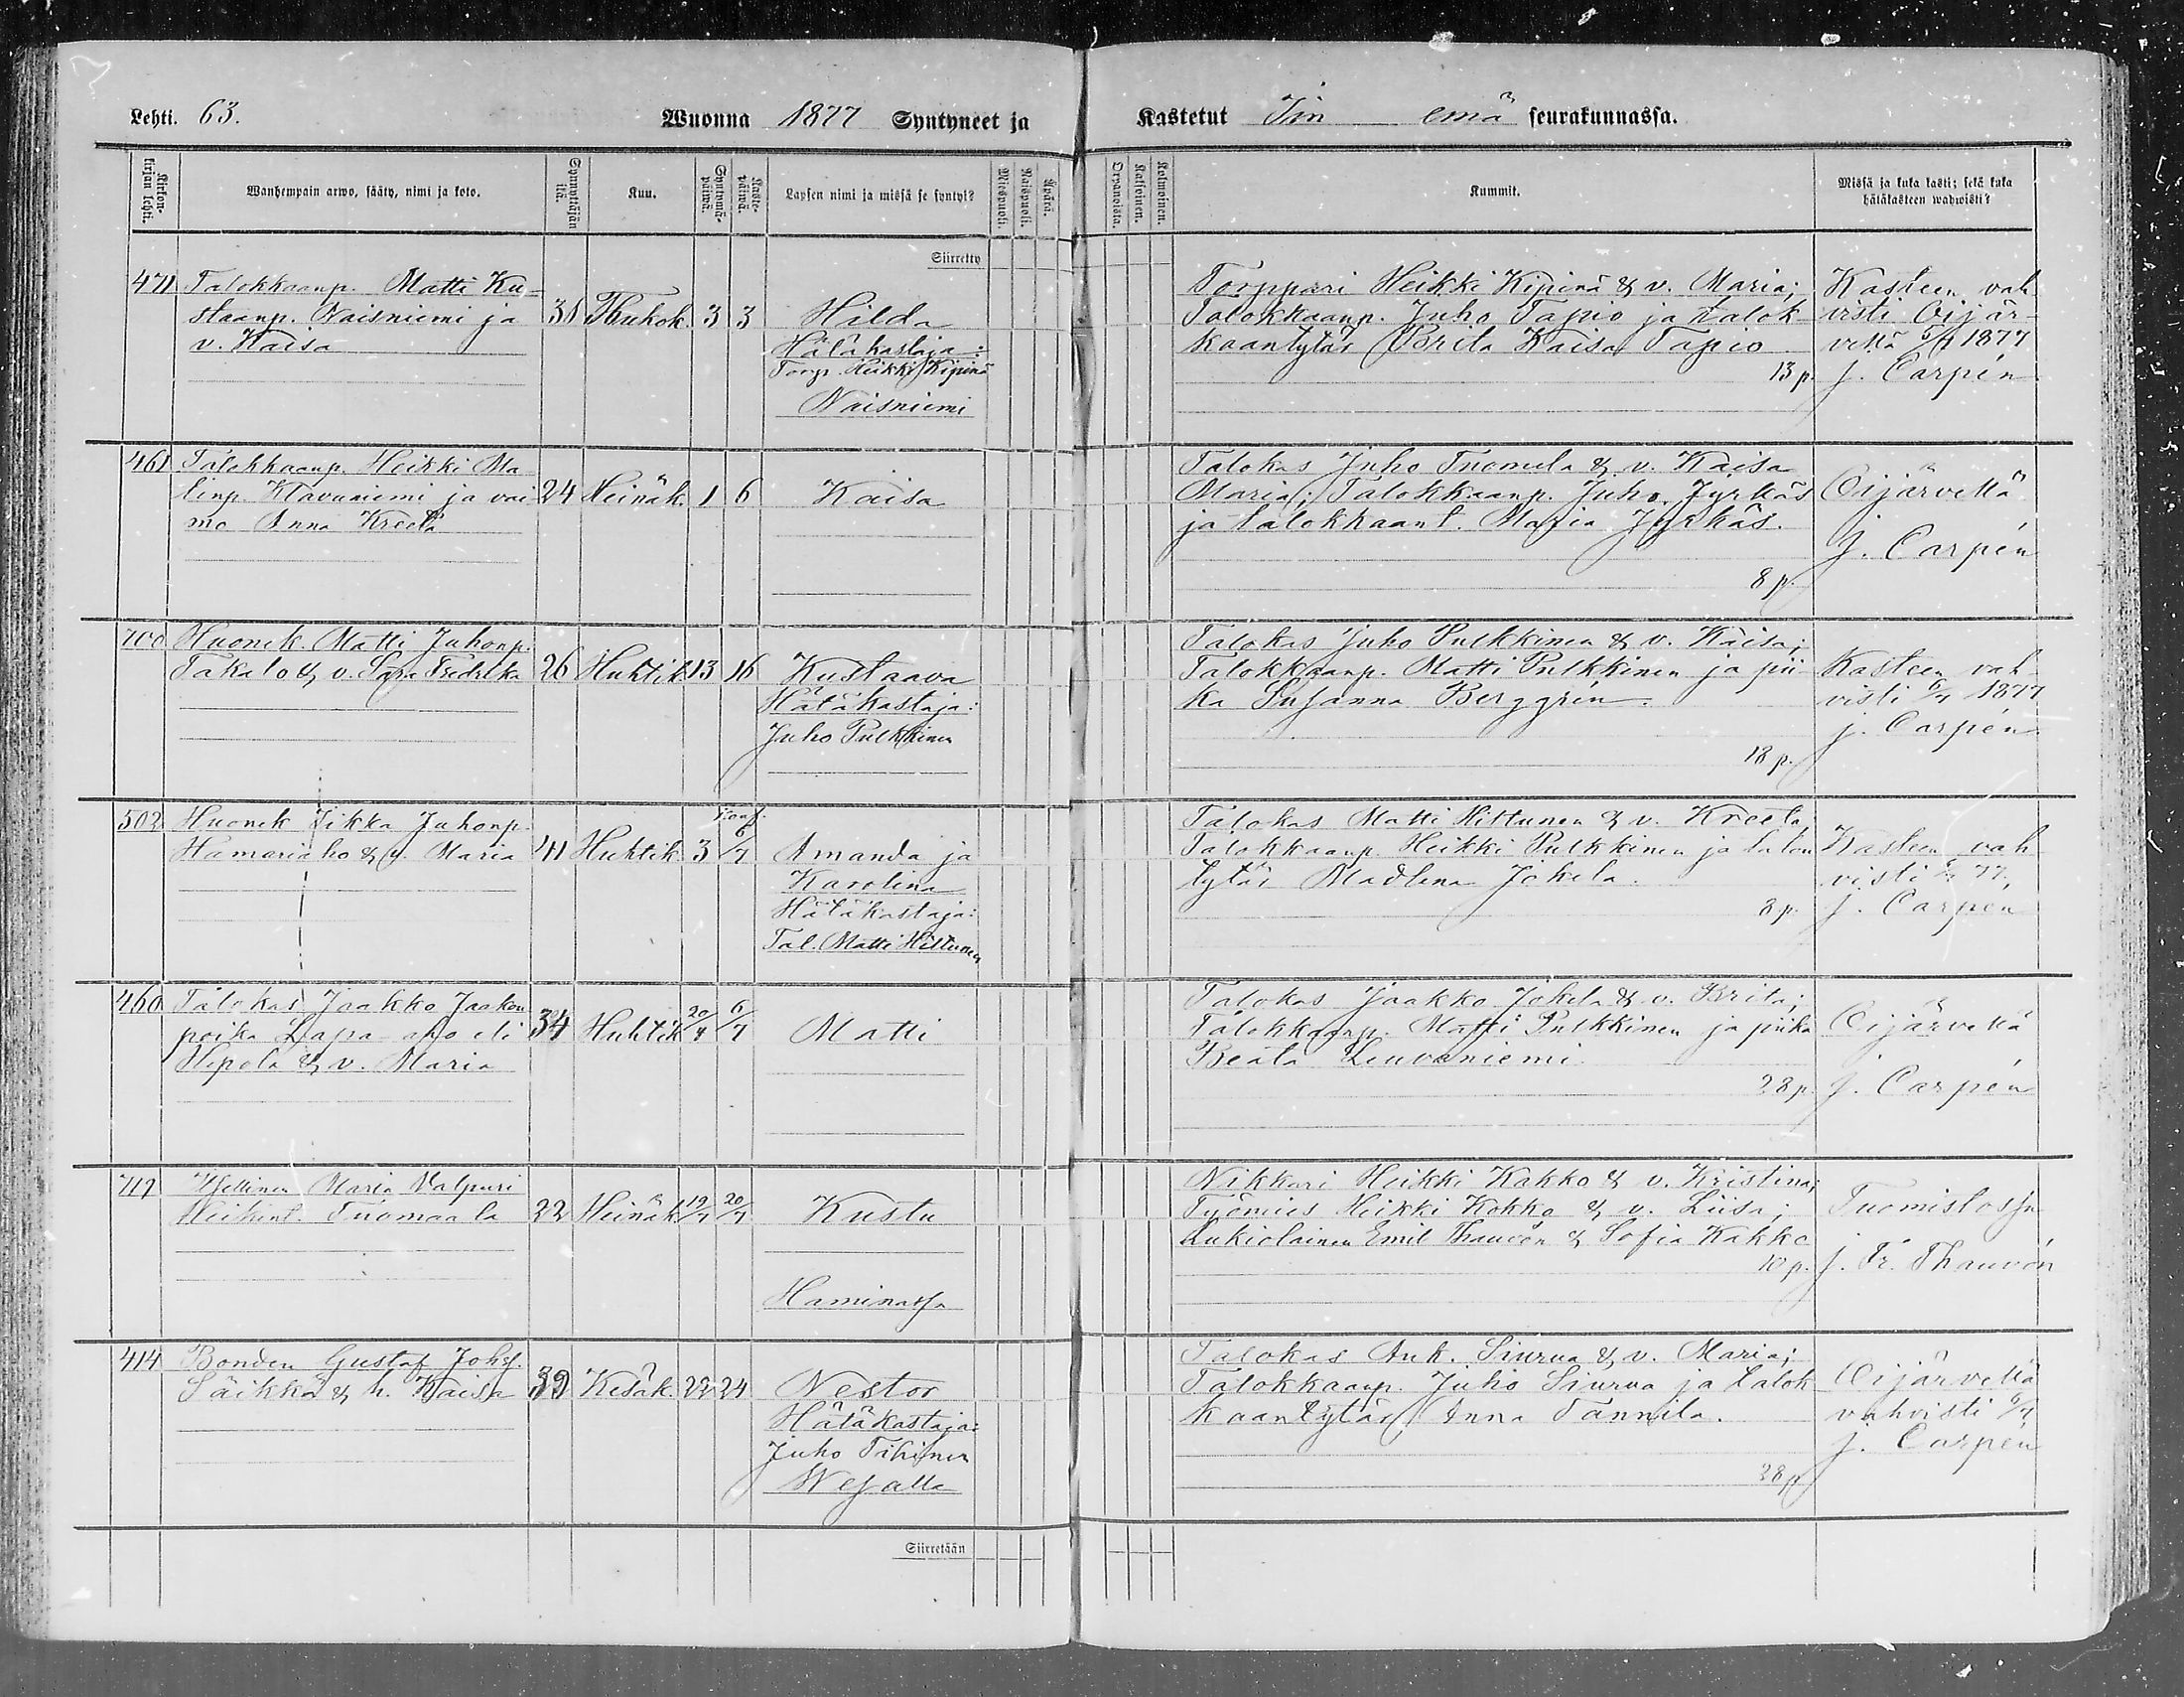 Lehti. 63.
Wuonna 1877 Syntyneet ja
Kastetut Iin emä seurakunnassa.
Kirkon-
kirjan lehti.
Wanhempain arwo, sääty, nimi ja koto.
Synnyttäjän
ikä.
Kuu.
Syntymä-
päiwä.
Kaste-
päiwä.
Lapsen nimi ja missä se syntyi?
Miespuoli.
Naispuoli.
Äpärä.
Orpanoista.
Kaksoinen.
Kolmoinen.
Kummit.
Missä ja kuka kasti; sekä kuka
hätäkasteen wahwisti?
Siirretty
471
Talokkaanp. Matti Ku-
staanp. Naisniemi ja
v. Kaisa
38 Thukok. 3 3
Hilda
Hätäkastaja:
Torp. Heikki Kipinä
Naisniemi
Torppari Heikki Kipinä & v. Maria;
Talokkaanp. Juho Tapio ja talok-
kaantytär Brita Kaisa Tapio
13 p.
Kasteen vah-
visti Oijär-
vellä 6/7 1877
J. Carpén
461
Talokkaanp. Heikki Ma-
tinp. Klavuniemi ja vai-
mo Anna Kreeta
24 Heinäk. 1 6
Kaisa
Talokas Juho Tuomela & v. Kaisa
Maria; Talokkaanp. Juho Jyrkäs
ja talokkaant. Maria Jyrkäs.
8 p.
Oijärvellä
J. Carpén
700
Huonek. Matti Juhonp.
Takalo & v. Sara Fredrika
26 Huhtik. 13 16
Kustaava
Hätäkastaja:
Juho Pulkkinen
Talokas Juho Pulkkinen & v. Kaisa;
Talokkaanp. Matti Pulkkinen ja pii-
ka Susanna Berggrén.
18 p.
Kasteen vah-
visti 6/7 1877
J. Carpén
502
Huonek Iikka Juhonp.
Hamariaho & v. Maria
41 Huhtik 3 6/7
Amanda ja
Karolina
Hätäkastaja:
Tal. Matti Hiltunen
Talokas Matti Hiltunen & v. Kreeta
Talokkaanp. Heikki Pulkkinen ja talon
tytär Madlena Jokela.
8 p.
Kasteen vah
visti 6/7 77.
J. Carpén
460
Talokas Jaakko Jaakon
poika Lapa-aho eli
Hepola & v. Maria
34 Huhtik 20/4 6/7
Matti
Talokas Jaakko Jokela & v. Brita;
Talokkaanp. Matti Pulkkinen ja piika
Beata Leuvaniemi
28 p.
Oijärvellä
J. Carpén
Maria Valpuri
Heikint. Tuomaala
22 Heinäk 19/7 20/7
Kustu
Haminassa
Nikkari Heikki Kakko & v. Kristina;
Työmies Heikki Kokko & v. Liisa;
Lukiolainen Emil Thauvón & Sofia Kakko
10 p.
Tuomistossa
J. Fr. Thauvón
414
Bonden Gustaf Johsf.
Säikkä & h. Kaisa
39 Kesäk. 22 24
Nestor
Hätäkastaja:
Juho Tihinen
Talokas Ant. Siurua & v. Maria;
Talokkaanp. Juho Siurua ja talok
kaantytär Anna Tannila.
28 p
Oijärvellä
vahvisti 6/7
J. Carpén
Siirretään